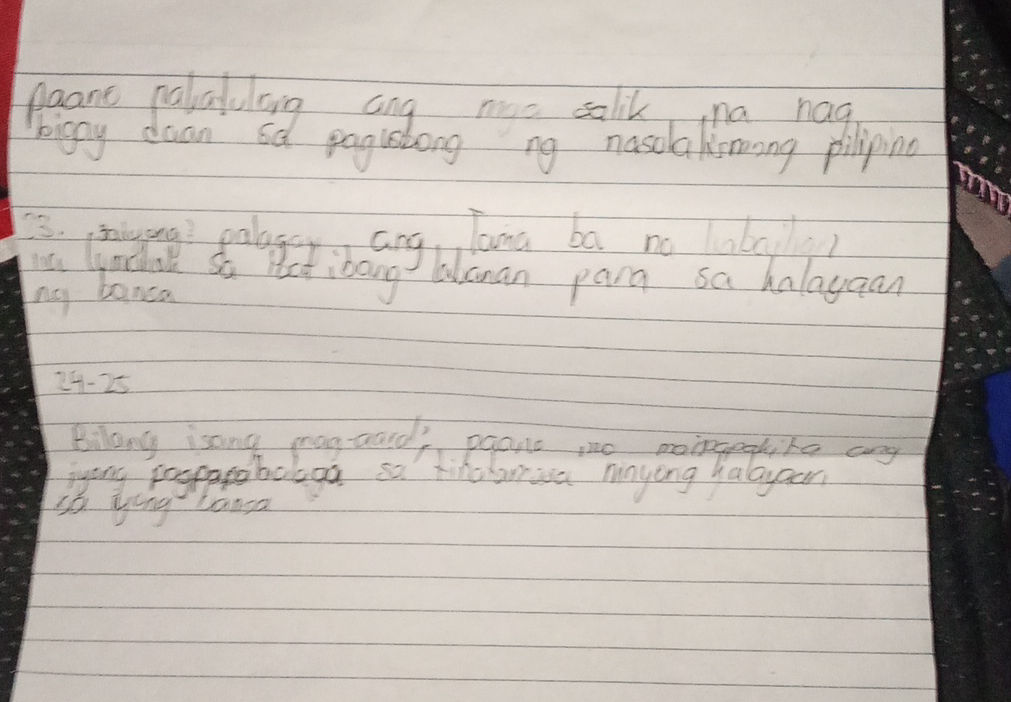 paano nakatulong ang mga salik na nag
bigay daan sa pagusbong ng nasolalismong pilipino
23. palagay, ang Tama ba na
sa ibang para sa kalayaan
ng bansa
24-25
Bilang isang mag-aaral, paano mo maipapakita ang
iyong pagpapahalaga sa ninyong kalayaan
sa iyong bansa